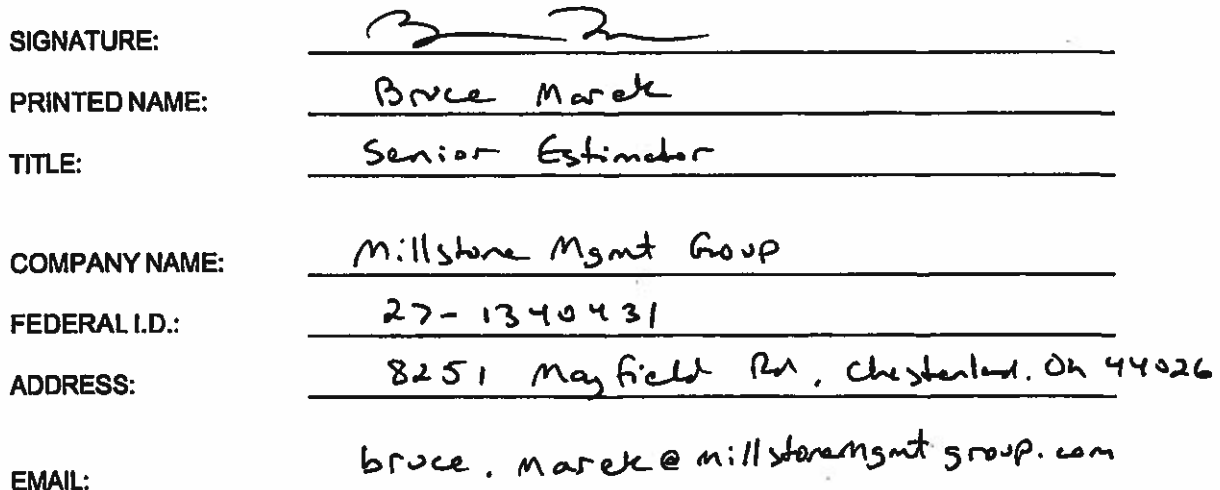 SIGNATURE:
PRINTED NAME: Bruce Marek
TITLE: Senior Estimator
COMPANY NAME: Millstone Mgmt Group
FEDERAL I.D.: 27-1340431
ADDRESS: 8251 Mayfield Rd, Chesterland, Oh 44026
EMAIL: bruce.marek@millstonemgmtgroup.com